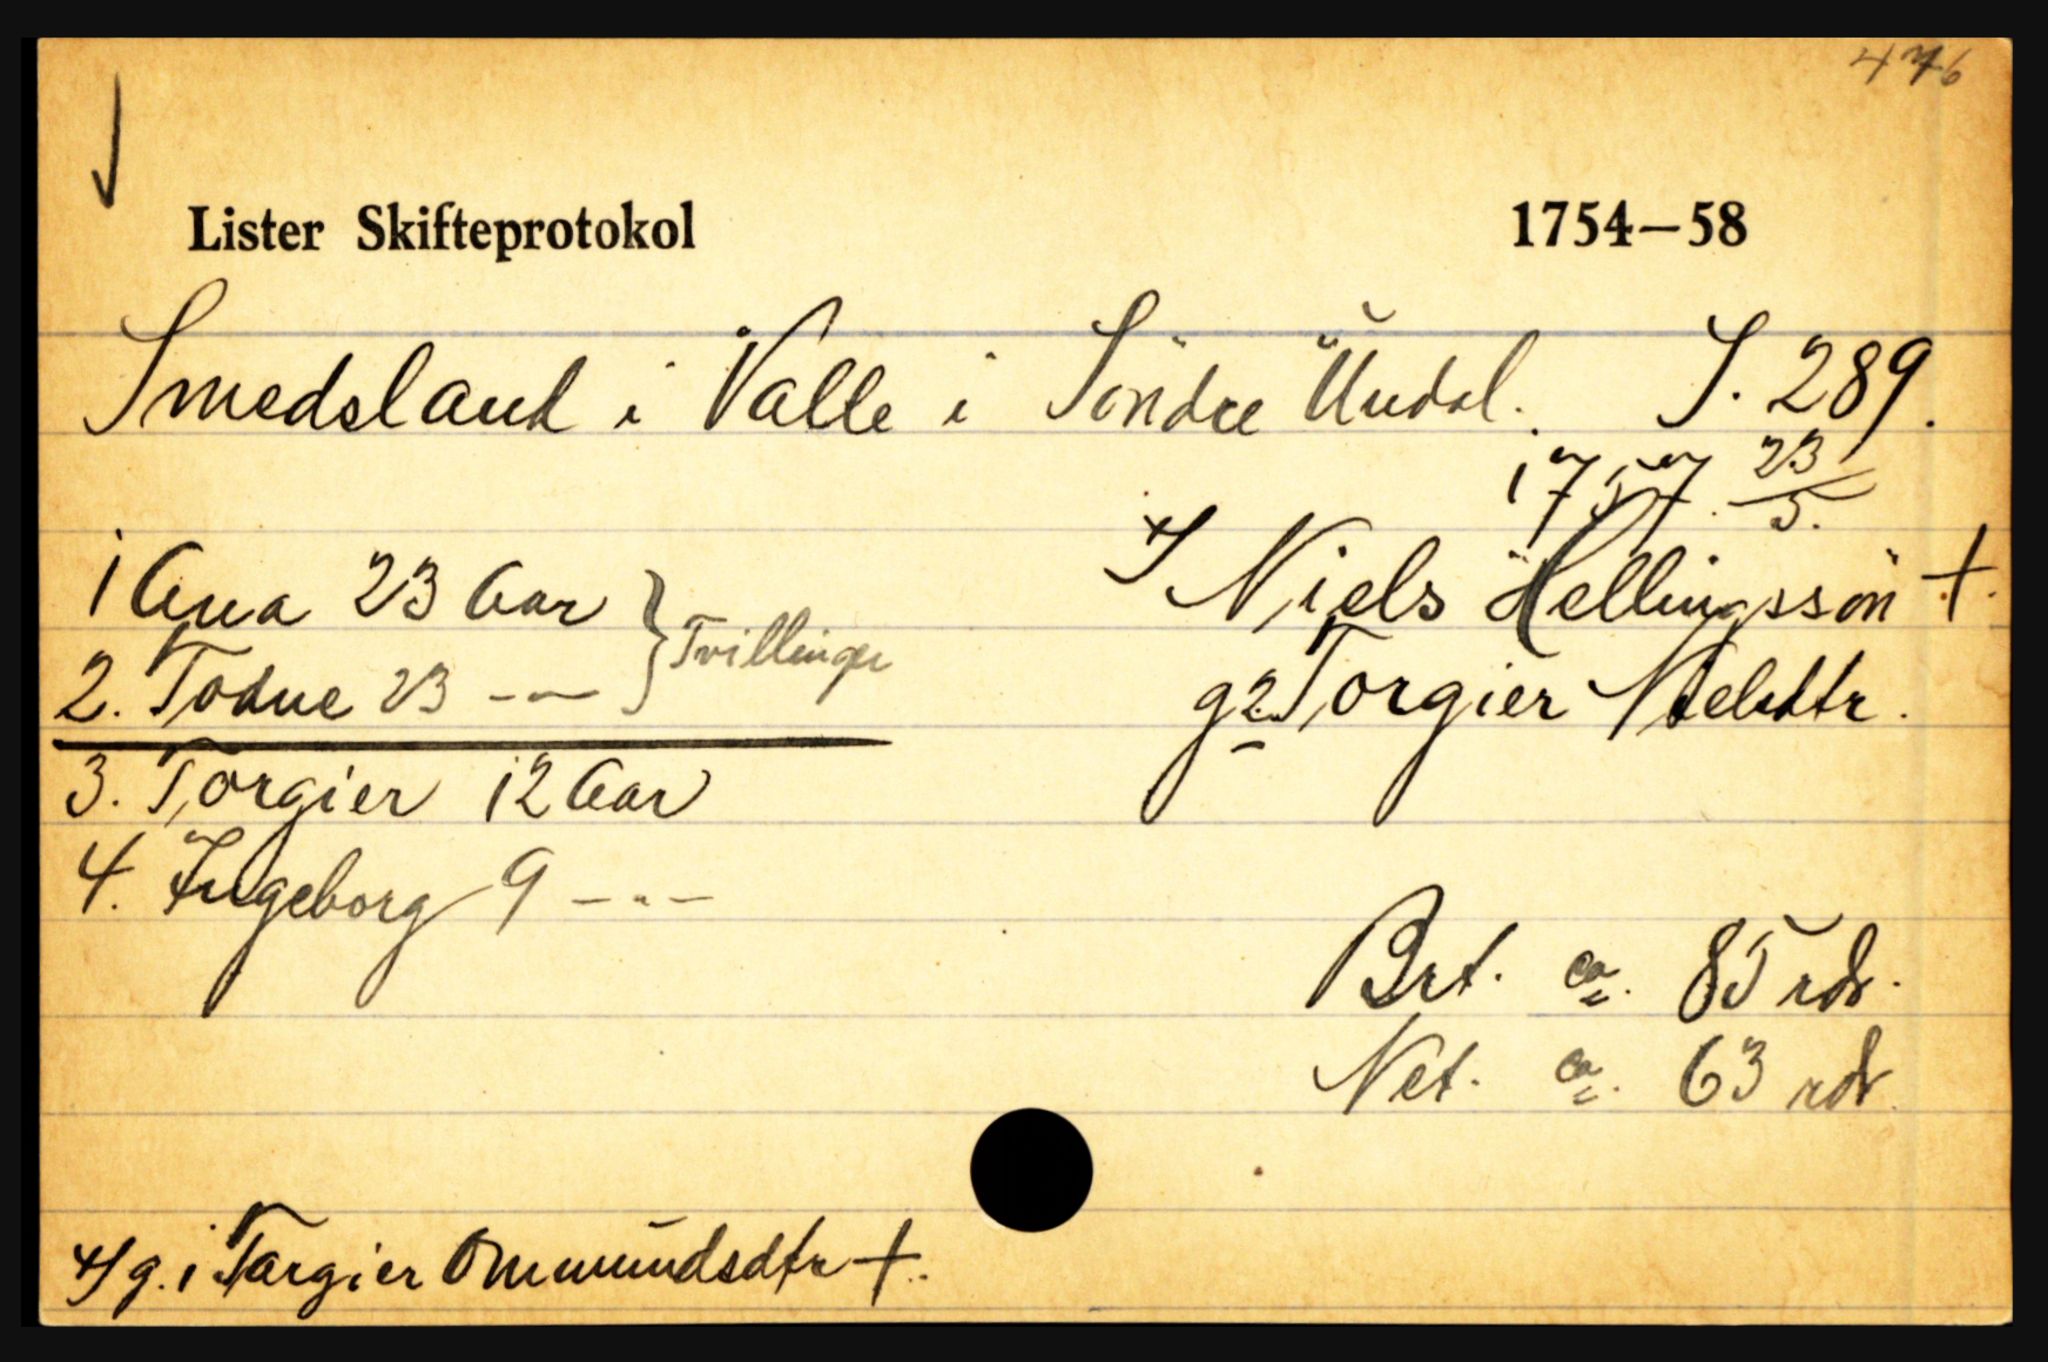 476
Lister Skifteprotokol 1754—58
Smedsland i Valle i Söndre Undal. S. 289.
1757. 23/5.
Niels Hellingssön +.
g2. Torgier Nielsdtr.
1 Ana 23 Aar } Tvillinger
2. Todne 23 -"-
3. Torgier 12 Aar
4. Ingeborg 9 -"-
Brt. ca. 85 rdr.
Net. ca. 63 rdr.
g. 1 Targier Ommundsdtr +.